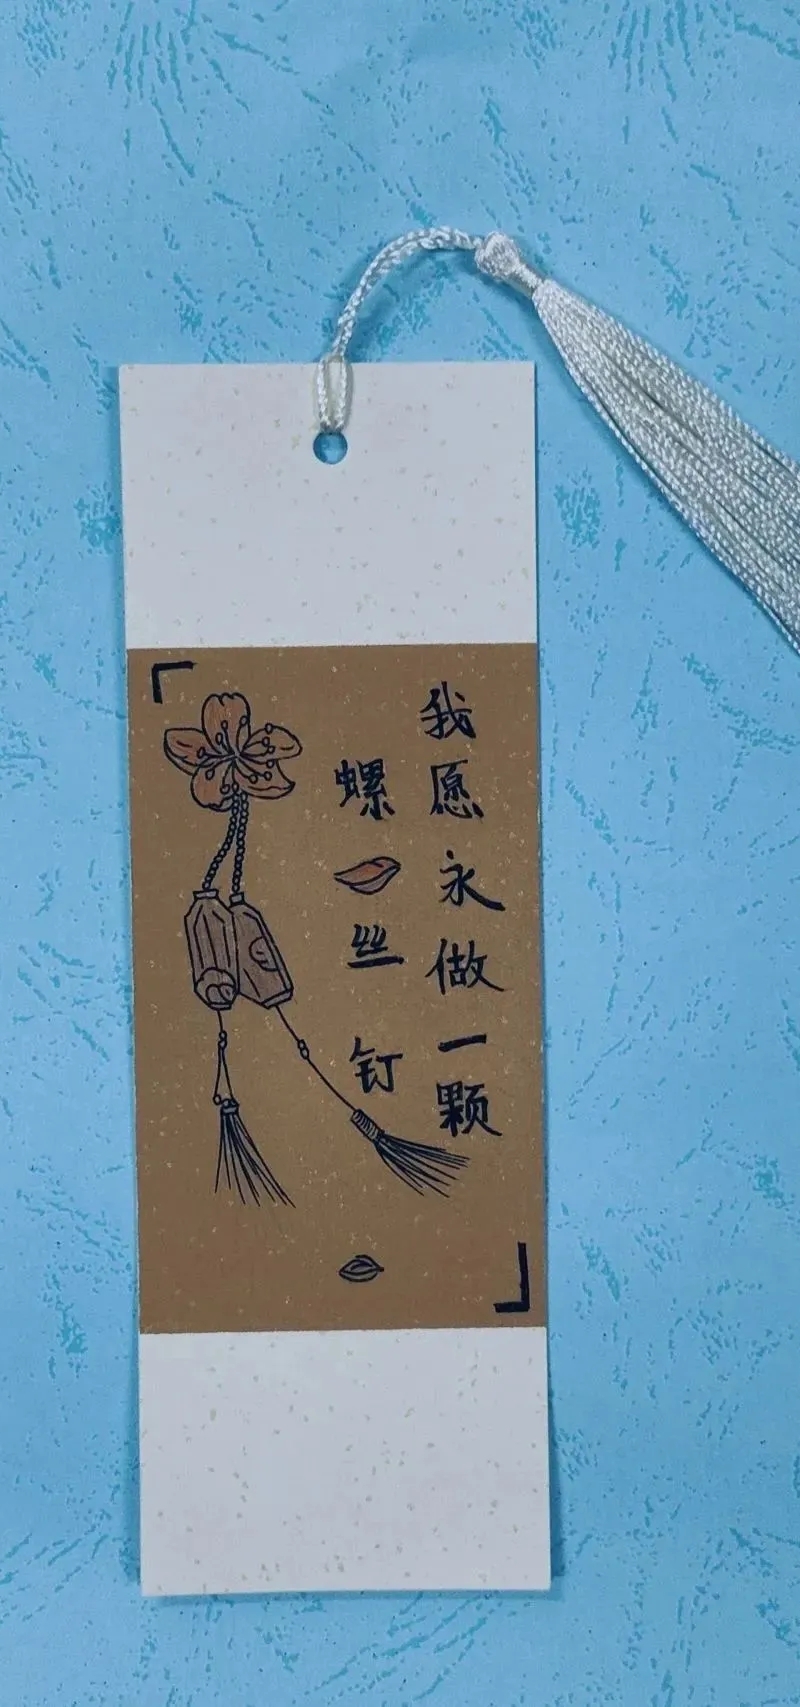 我愿永做一颗
螺丝钉